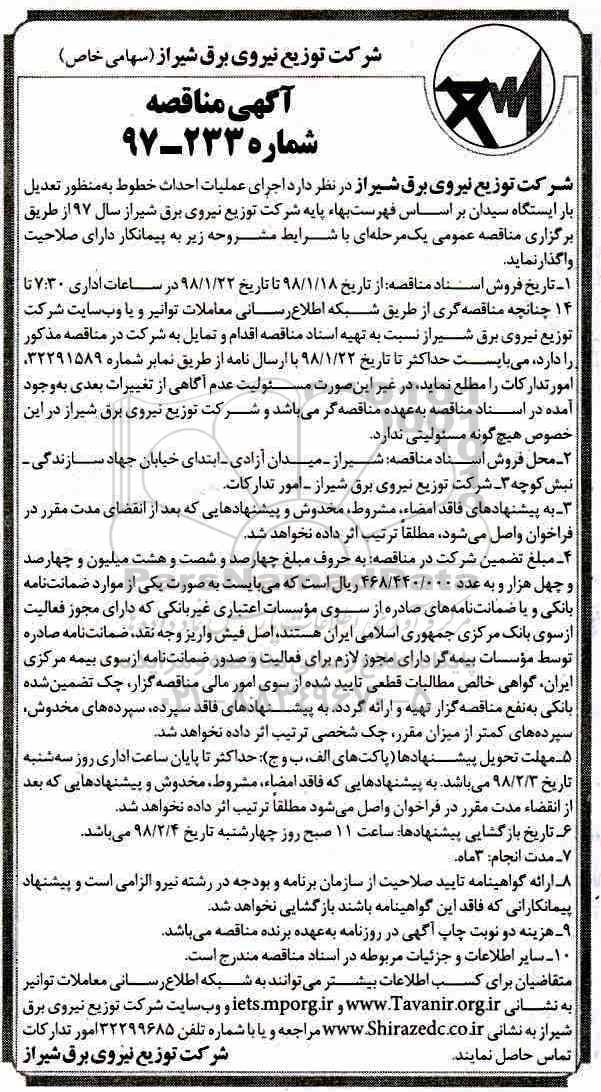 شرکت توزیع نیروی برق شیراز (سهامی خاص)
آگهی مناقصه
شماره ۲۳۳-۹۷
شرکت توزیع نیروی برق شیراز در نظر دارد اجرای عملیات احداث خطوط به‌منظور تعدیل
بار ایستگاه سیدان بر اساس فهرست‌بهاء پایه شرکت توزیع نیروی برق شیراز سال ۹۷ از طریق
برگزاری مناقصه عمومی یک‌مرحله‌ای با شرایط مشروحه زیر به پیمانکار دارای صلاحیت
واگذار نماید.
۱- تاریخ فروش اسناد مناقصه: از تاریخ ۹۸/۱/۱۸ تا تاریخ ۹۸/۱/۲۲ در ساعات اداری ۷:۳۰ تا
۱۴ چنانچه مناقصه‌گری از طریق شبکه اطلاع‌رسانی معاملات توانیر و یا وب‌سایت شرکت
توزیع نیروی برق شیراز نسبت به تهیه اسناد مناقصه اقدام و تمایل به شرکت در مناقصه مذکور
را دارد، می‌بایست حداکثر تا تاریخ ۹۸/۱/۲۲ با ارسال نامه از طریق نمابر شماره ۳۲۲۹۱۵۸۹،
امور تدارکات را مطلع نماید، در غیر این‌صورت مسئولیت عدم آگاهی از تغییرات بعدی به‌وجود
آمده در اسناد مناقصه به‌عهده مناقصه‌گر می‌باشد و شرکت توزیع نیروی برق شیراز در این
خصوص هیچ‌گونه مسئولیتی ندارد.
۲- محل فروش اسناد مناقصه: شیراز - میدان آزادی - ابتدای خیابان جهاد سازندگی -
نبش کوچه ۳- شرکت توزیع نیروی برق شیراز - امور تدارکات.
۳- به پیشنهادهای فاقد امضاء، مشروط، مخدوش و پیشنهادهایی که بعد از انقضای مدت مقرر در
فراخوان واصل می‌شود، مطلقاً ترتیب اثر داده نخواهد شد.
۴- مبلغ تضمین شرکت در مناقصه: به حروف مبلغ چهارصد و شصت و هشت میلیون و چهارصد
و چهل هزار و به عدد ۴۶۸/۴۴۰/۰۰۰ ریال است که می‌بایست به صورت یکی از موارد ضمانت‌نامه
بانکی و یا ضمانت‌نامه‌های صادره از سوی مؤسسات اعتباری غیربانکی که دارای مجوز فعالیت
ازسوی بانک مرکزی جمهوری اسلامی ایران هستند، اصل فیش واریز وجه نقد، ضمانت‌نامه صادره
توسط مؤسسات بیمه‌گر دارای مجوز لازم برای فعالیت و صدور ضمانت‌نامه ازسوی بیمه مرکزی
ایران، گواهی خالص مطالبات قطعی تایید شده از سوی امور مالی مناقصه‌گزار، چک تضمین‌شده
بانکی به‌نفع مناقصه‌گزار تهیه و ارائه گردد. به پیشنهادهای فاقد سپرده، سپرده‌های مخدوش،
سپرده‌های کمتر از میزان مقرر، چک شخصی ترتیب اثر داده نخواهد شد.
۵- مهلت تحویل پیشنهادها (پاکت‌های الف، ب و ج): حداکثر تا پایان ساعت اداری روز سه‌شنبه
تاریخ ۹۸/۲/۳ می‌باشد. به پیشنهادهایی که فاقد امضاء، مشروط، مخدوش و پیشنهادهایی که بعد
از انقضاء مدت مقرر در فراخوان واصل می‌شود مطلقاً ترتیب اثر داده نخواهد شد.
۶- تاریخ بازگشایی پیشنهادها: ساعت ۱۱ صبح روز چهارشنبه تاریخ ۹۸/۲/۴ می‌باشد.
۷- مدت انجام: ۳ماه.
۸- ارائه گواهینامه تایید صلاحیت از سازمان برنامه و بودجه در رشته نیرو الزامی است و پیشنهاد
پیمانکارانی که فاقد این گواهینامه باشند بازگشایی نخواهد شد.
۹- هزینه دو نوبت چاپ آگهی در روزنامه به‌عهده برنده مناقصه می‌باشد.
۱۰- سایر اطلاعات و جزئیات مربوطه در اسناد مناقصه مندرج است.
متقاضیان برای کسب اطلاعات بیشتر می‌توانند به شبکه اطلاع‌رسانی معاملات توانیر
به نشانی www.Tavanir.org.ir و iets.mporg.ir و وب‌سایت شرکت توزیع نیروی برق
شیراز به نشانی www.Shirazedc.co.ir مراجعه و یا با شماره تلفن ۳۲۲۹۹۶۸۵ امور تدارکات
تماس حاصل نمایند.
شرکت توزیع نیروی برق شیراز